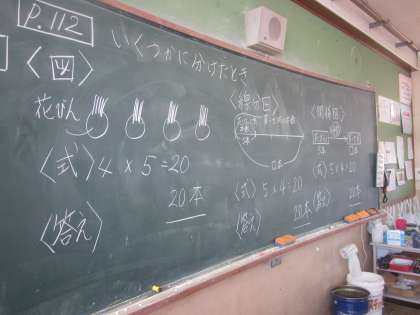 P.112
いくつかに分けたとき
〈図〉
花びん
〈式〉4×5=20
20本
〈答え〉
〈線分図〉
〈式〉5×4=20
20本
〈答え〉
〈関係図〉
〈式〉5×4=20
〈答え〉
20本